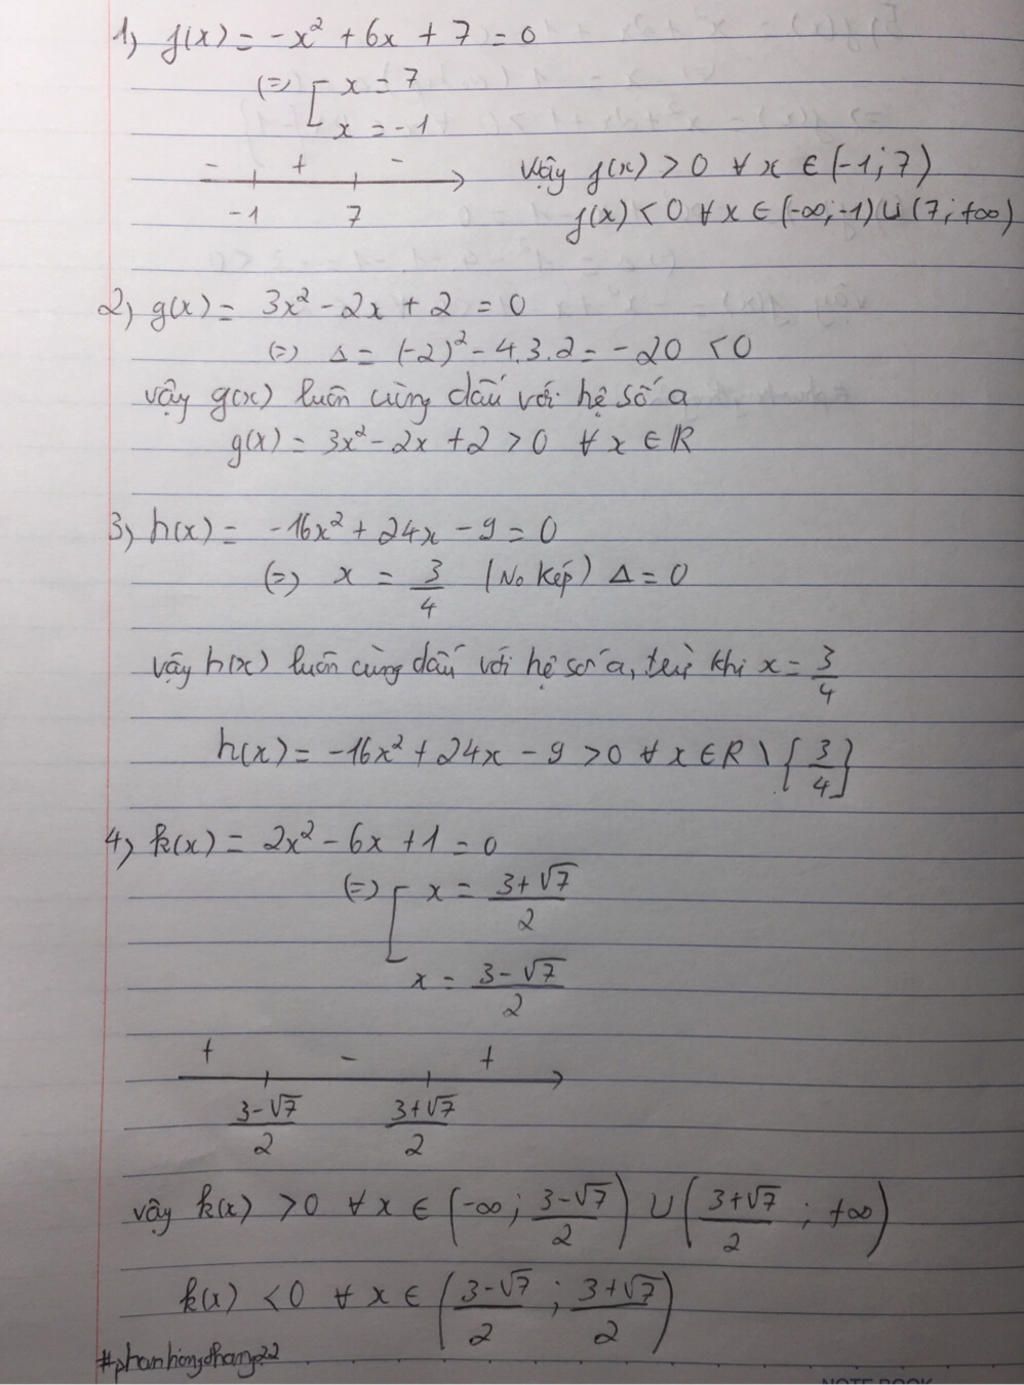 1, f(x) = -x² + 6x + 7 = 0
(=) [ x = 7
x = -1
- + -
-1 7
Vậy f(x) > 0 ∀ x ∈ (-1; 7)
f(x) < 0 ∀ x ∈ (-∞; -1) ∪ (7; +∞)
2, g(x) = 3x² - 2x + 2 = 0
(=) Δ = (-2)² - 4.3.2 = -20 < 0
vậy g(x) luôn cùng dấu với hệ số a
g(x) = 3x² - 2x + 2 > 0 ∀ x ∈ ℝ
3, h(x) = -16x² + 24x - 9 = 0
(=) x = 3/4 (No kép) Δ = 0
vậy h(x) luôn cùng dấu với hệ số a, trừ khi x = 3/4
h(x) = -16x² + 24x - 9 > 0 ∀ x ∈ R \ {3/4}
4, k(x) = 2x² - 6x + 1 = 0
(=) [ x = (3+√7)/2
x = (3-√7)/2
+ - +
(3-√7)/2 (3+√7)/2
vậy k(x) > 0 ∀ x ∈ (-∞; (3-√7)/2) ∪ ((3+√7)/2; +∞)
k(x) < 0 ∀ x ∈ ((3-√7)/2; (3+√7)/2)
NOTE BOOK